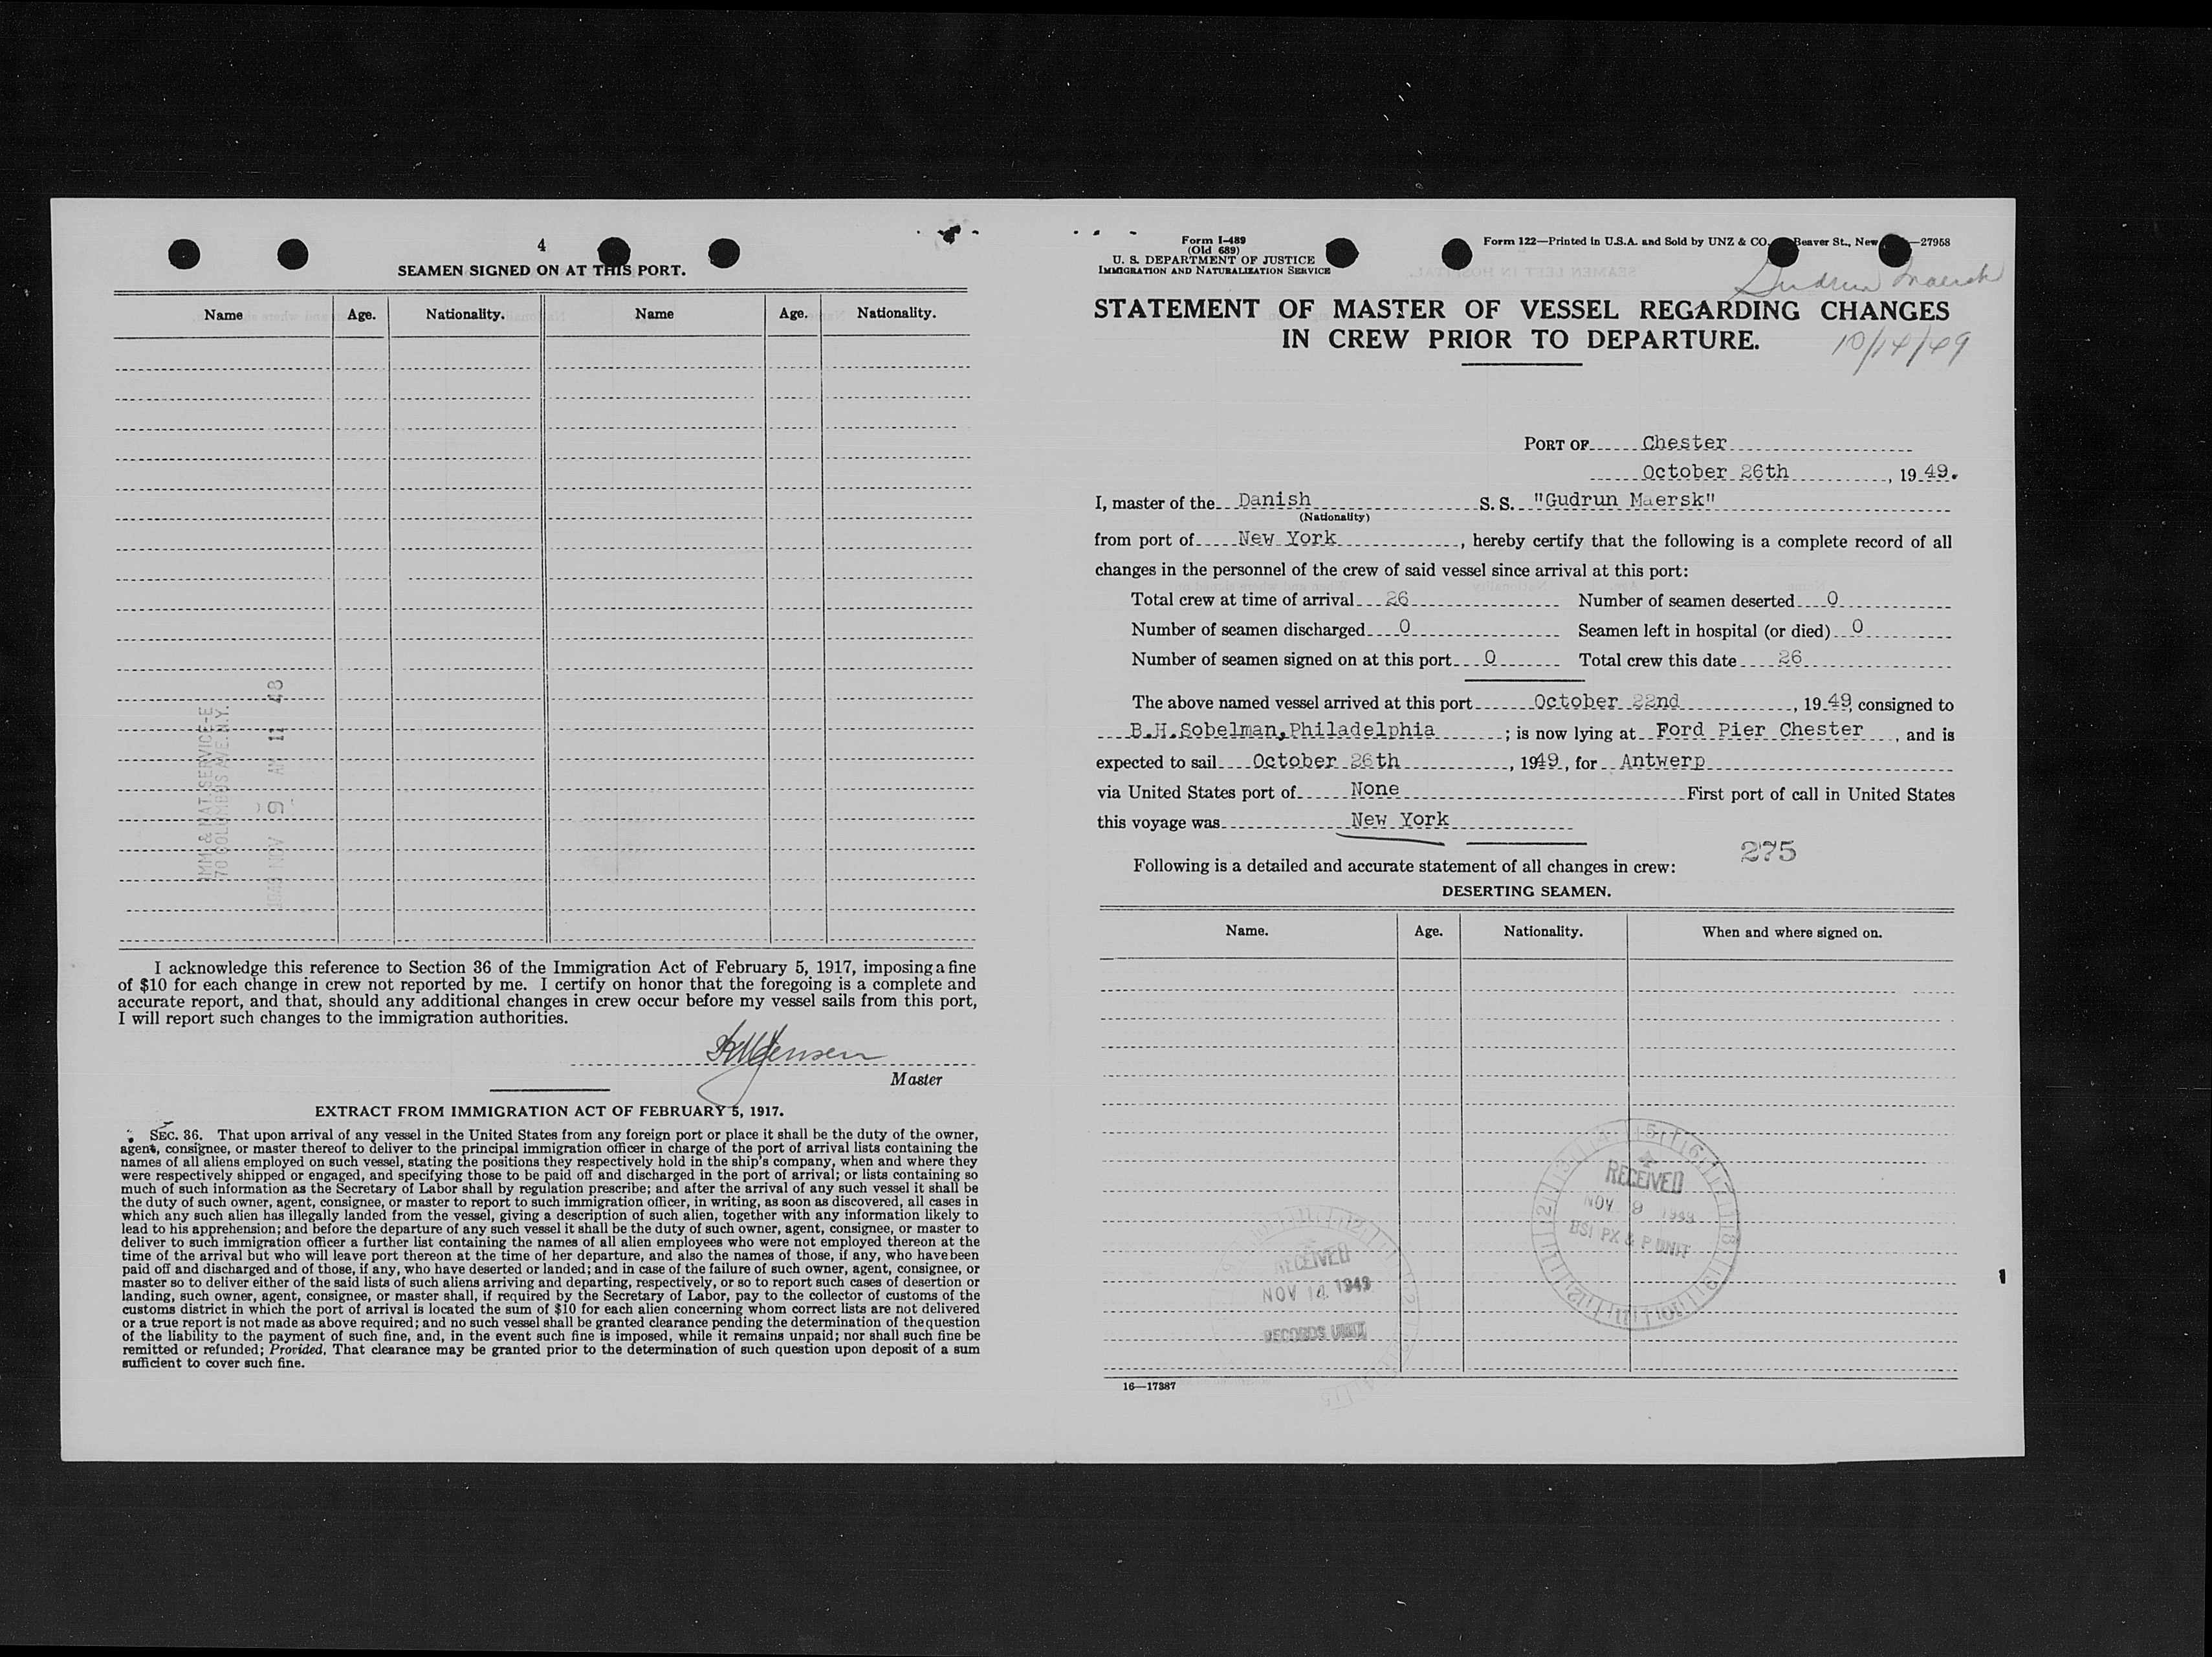 4
SEAMEN SIGNED ON AT THIS PORT.
Name Age. Nationality. Name Age. Nationality.
IMM & NAT SERVICE-E
70 COLUMBUS AVE. N.Y.
NOV 9 AM 11 48
I acknowledge this reference to Section 36 of the Immigration Act of February 5, 1917, imposing a fine
of $10 for each change in crew not reported by me. I certify on honor that the foregoing is a complete and
accurate report, and that, should any additional changes in crew occur before my vessel sails from this port,
I will report such changes to the immigration authorities.
Jensen
Master
EXTRACT FROM IMMIGRATION ACT OF FEBRUARY 5, 1917.
SEC. 36. That upon arrival of any vessel in the United States from any foreign port or place it shall be the duty of the owner,
agent, consignee, or master thereof to deliver to the principal immigration officer in charge of the port of arrival lists containing the
names of all aliens employed on such vessel, stating the positions they respectively hold in the ship's company, when and where they
were respectively shipped or engaged, and specifying those to be paid off and discharged in the port of arrival; or lists containing so
much of such information as the Secretary of Labor shall by regulation prescribe; and after the arrival of any such vessel it shall be
the duty of such owner, agent, consignee, or master to report to such immigration officer, in writing, as soon as discovered, all cases in
which any such alien has illegally landed from the vessel, giving a description of such alien, together with any information likely to
lead to his apprehension; and before the departure of any such vessel it shall be the duty of such owner, agent, consignee, or master to
deliver to such immigration officer a further list containing the names of all alien employees who were not employed thereon at the
time of the arrival but who will leave port thereon at the time of her departure, and also the names of those, if any, who have been
paid off and discharged and of those, if any, who have deserted or landed; and in case of the failure of such owner, agent, consignee, or
master so to deliver either of the said lists of such aliens arriving and departing, respectively, or so to report such cases of desertion or
landing, such owner, agent, consignee, or master shall, if required by the Secretary of Labor, pay to the collector of customs of the
customs district in which the port of arrival is located the sum of $10 for each alien concerning whom correct lists are not delivered
or a true report is not made as above required; and no such vessel shall be granted clearance pending the determination of the question
of the liability to the payment of such fine, and, in the event such fine is imposed, while it remains unpaid; nor shall such fine be
remitted or refunded; Provided, That clearance may be granted prior to the determination of such question upon deposit of a sum
sufficient to cover such fine.
Form I-489
(Old 689)
U. S. DEPARTMENT OF JUSTICE
IMMIGRATION AND NATURALIZATION SERVICE
Form 122—Printed in U.S.A. and Sold by UNZ & CO. Beaver St., New —27958
Gudrun Maersk
STATEMENT OF MASTER OF VESSEL REGARDING CHANGES
IN CREW PRIOR TO DEPARTURE.
10/14/49
PORT OF Chester
October 26th, 1949.
I, master of the Danish S. S. "Gudrun Maersk"
(Nationality)
from port of New York, hereby certify that the following is a complete record of all
changes in the personnel of the crew of said vessel since arrival at this port:
Total crew at time of arrival 26 Number of seamen deserted 0
Number of seamen discharged 0 Seamen left in hospital (or died) 0
Number of seamen signed on at this port 0 Total crew this date 26
The above named vessel arrived at this port October 22nd, 1949, consigned to
B.H.Sobelman,Philadelphia; is now lying at Ford Pier Chester, and is
expected to sail October 26th, 1949, for Antwerp
via United States port of None First port of call in United States
this voyage was New York
275
Following is a detailed and accurate statement of all changes in crew:
DESERTING SEAMEN.
Name. Age. Nationality. When and where signed on.
RECEIVED
NOV 9 1949
BSI PX & P UNIT
RECEIVED
NOV 14 1949
RECORDS UNIT
16—17387